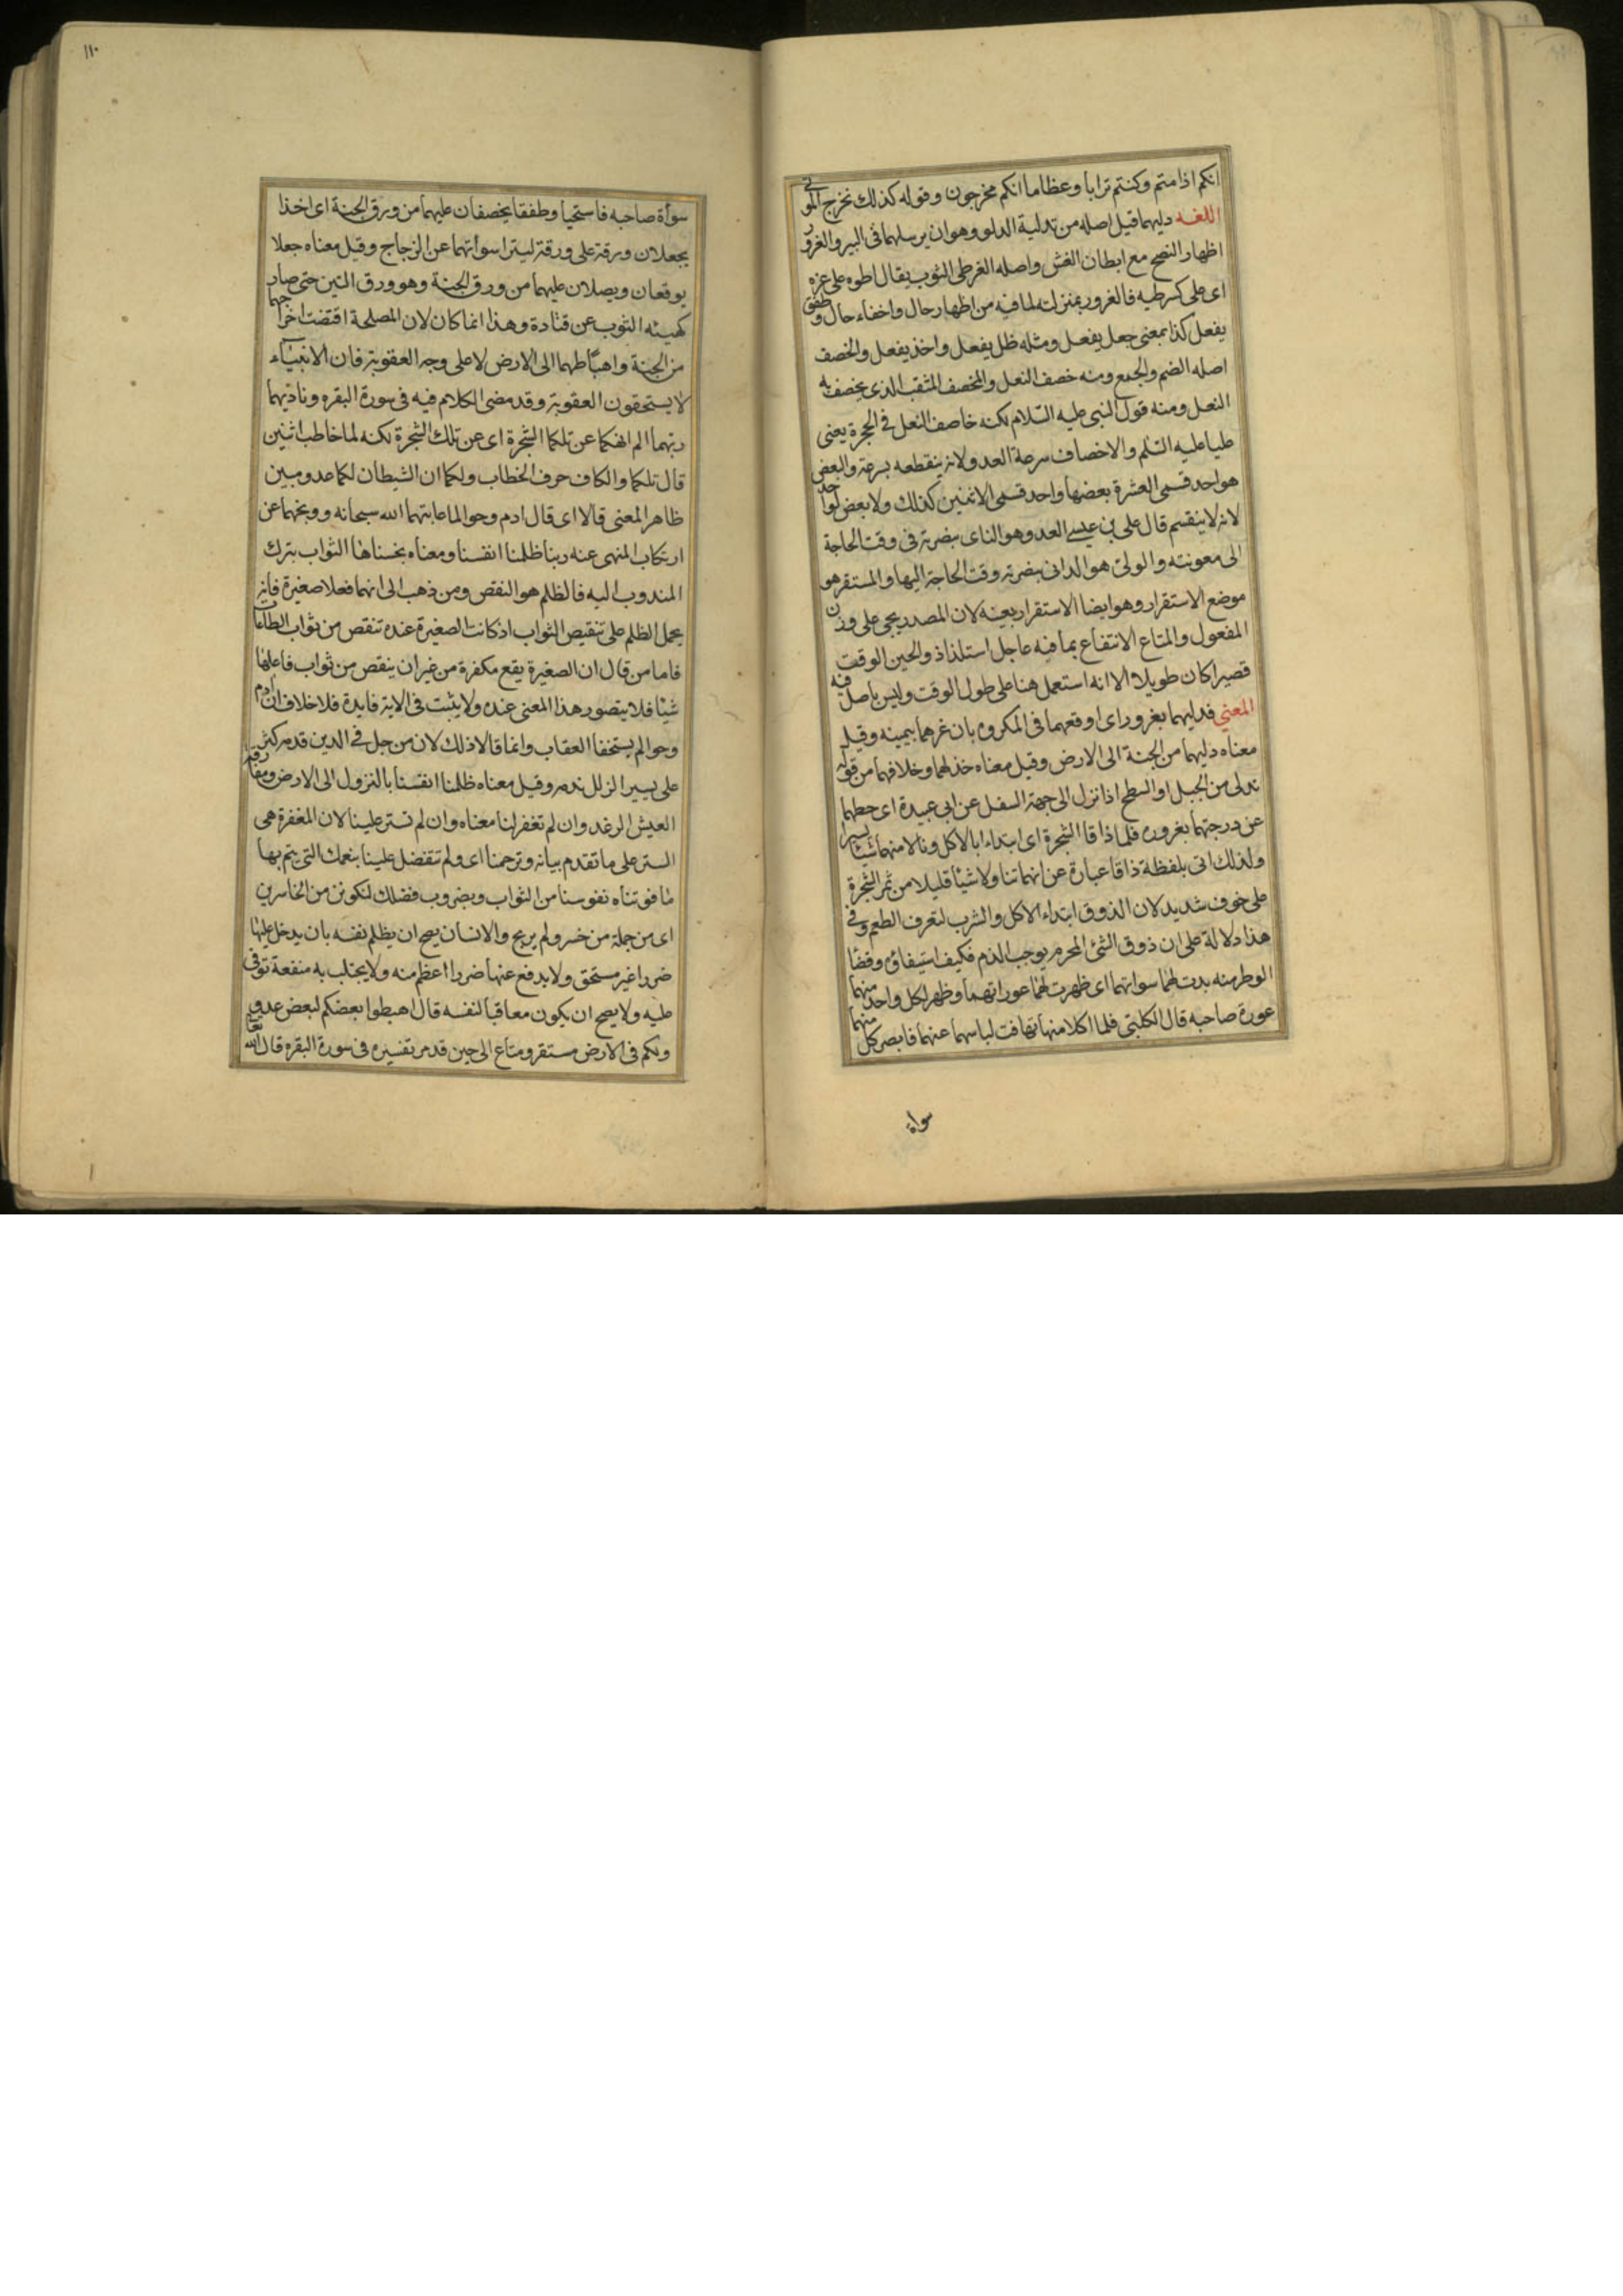 انكم اذا متم وكنتم ترابا وعظاما انكم مخرجون وقوله كذلك نخرج الموتى
اللغه دليهما قيل اصله من تدلية الدلو وهو ان يرسلهما فى البير والغرور
اظهار النصح مع ابطان الغش واصله الغر طى الثوب يقال اطوه على غره
اى على كسر طيه فالغرور بمنزلته لما فيه من اظهار حال واخفاء حال وطفق
يفعل كذا بمعنى جعل يفعل ومثله ظل يفعل واخذ يفعل والخصف
اصله الضم والجمع ومنه خصف النعل والمخصف المثقب الذى يخصف به
النعل ومنه قول النبى عليه السلام لكنه خاصف النعل فى الحجرة يعنى
عليا عليه السلم والاخصاف سرعة العدو لانه ينقطعه بسرعة والبعض
هو احد قسمى العشرة بعضها واحد قسمى الاثنين كذلك ولا بعض لواحد
لانه لا ينقسم قال على بن عيسى العدو هو الناى بنصرته فى وقت الحاجة
الى معونته والولى هو الدانى بنصرته وقت الحاجة اليها والمستقر هو
موضع الاستقرار وهو ايضا الاستقرار بعينه لان المصدر يجى على وزن
المفعول والمتاع الانتفاع بما فيه عاجل استلذاذ والحين الوقت
قصيرا كان طويلا الا انه استعمل هنا على طول الوقت وليس باصل فيه
المعنى فدليهما بغرور اى اوقعهما فى المكروه بان غرهما بيمينه وقيل
معناه دليهما من الجنة الى الارض وقيل معناه خذلهما وخلافهما من قوله
تدلى من الجبل او السطح اذا نزل الى جهة السفل عن ابى عبيدة اى حطهما
عن درجتهما بغروره فلما ذاقا الشجرة اى ابتداءا بالاكل ونالا منهما شيئا يسيرا
ولذلك اتى بلفظة ذاقا عبارة عن انهما تناولا شيئا قليلا من ثمر الشجرة
على خوف شديد لان الذوق ابتداء الاكل والشرب لتعرف الطعم وفى
هذا دلالة على ان ذوق الشئ المحرم يوجب الذم فكيف استيفاؤه وقضا
الوطر منه بدت لهما سواتهما اى ظهرت لهما عوراتهما وظهر لكل واحد منهما
عورة صاحبه قال الكلبى فلما اكلا منها تهافت لباسهما عنهما فابصر كل منهما
سواة
١١٠
سوأة صاحبه فاستحيا وطفقا يخصفان عليهما من ورق الجنة اى اخذا
يجعلان ورقة على ورقة ليسترا سوأتهما عن الزجاج وقيل معناه جعلا
يوقعان ويصلان عليهما من ورق الجنة وهو ورق التين حتى صار
كهيئه الثوب عن قتادة وهذا انما كان لان المصلحة اقتضت اخراجهما
من الجنة واهباطهما الى الارض لا على وجه العقوبة فان الانبيآء
لا يستحقون العقوبة وقد مضى الكلام فيه فى سورة البقره وناديهما
ربهما الم انهكما عن تلكما الشجرة اى عن تلك الشجرة لكنه لما خاطب اثنين
قال تلكما والكاف حرف الخطاب ولكما ان الشيطان لكما عدو مبين
ظاهر المعنى قالا اى قال ادم وحوا لما عاتبهما الله سبحانه ووبخهما عن
ارتكاب المنهى عنه ربنا ظلمنا انفسنا ومعناه بخسناها الثواب بترك
المندوب اليه فالظلم هو النقص ومن ذهب الى انهما فعلا صغيرة فانه
يحمل الظلم على تنقيص الثواب اذ كانت الصغيرة عنده تنقص من ثواب الطاعات
فاما من قال ان الصغيرة يقع مكفرة من غير ان ينقص من ثواب فاعلها
شيئا فلا يتصور هذا المعنى عنده ولا يثبت فى الاية فايدة فلا خلاف ان ادم
وحوا لم يستحقا العقاب وانما قالا ذلك لان من جل فى الدين قدمه كثر
على يسير الزلل ندمه وقيل معناه ظلمنا انفسنا بالنزول الى الارض ومفارقة
العيش الرغد وان لم تغفر لنا معناه وان لم تستر علينا لان المغفرة هى
الستر على ما تقدم بيانه وترحمنا اى ولم تتفضل علينا بنعمك التى يتم بها
ما فوتناه نفوسنا من الثواب وبضروب فضلك لنكونن من الخاسرين
اى من جملة من خسر ولم يربح والانسان يصح ان يظلم نفسه بان يدخل عليها
ضررا غير مستحق ولا يدفع عنها ضررا اعظم منه ولا يجتلب به منفعة توفى
عليه ولا يصح ان يكون معاقبا لنفسه قال اهبطوا بعضكم لبعض عدو
ولكم فى الارض مستقر ومتاع الى حين قد مر تفسيره فى سورة البقره قال الله تعا